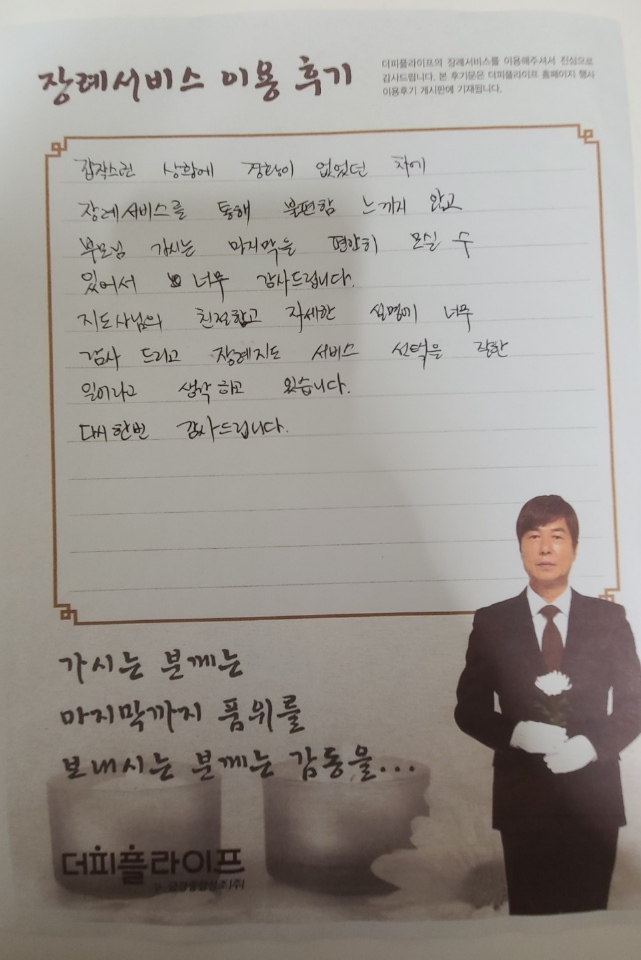 장례서비스 이용 후기
더피플라이프의 장례서비스를 이용해주셔서 진심으로
감사드립니다. 본 후기문은 더피플라이프 홈페이지 행사
이용후기 게시판에 기재됩니다.
갑작스런 상황에 경황이 없었던 차에
장례서비스를 통해 불편함 느끼지 않고
부모님 가시는 마지막을 편안히 모실 수
있어서 너무 감사드립니다.
지도사님의 친절함과 자세한 설명에 너무
감사 드리고 장례지도 서비스 선택을 잘한
일이라고 생각하고 있습니다.
다시한번 감사드립니다.
가시는 분께는
마지막까지 품위를
보내시는 분께는 감동을...
더피플라이프